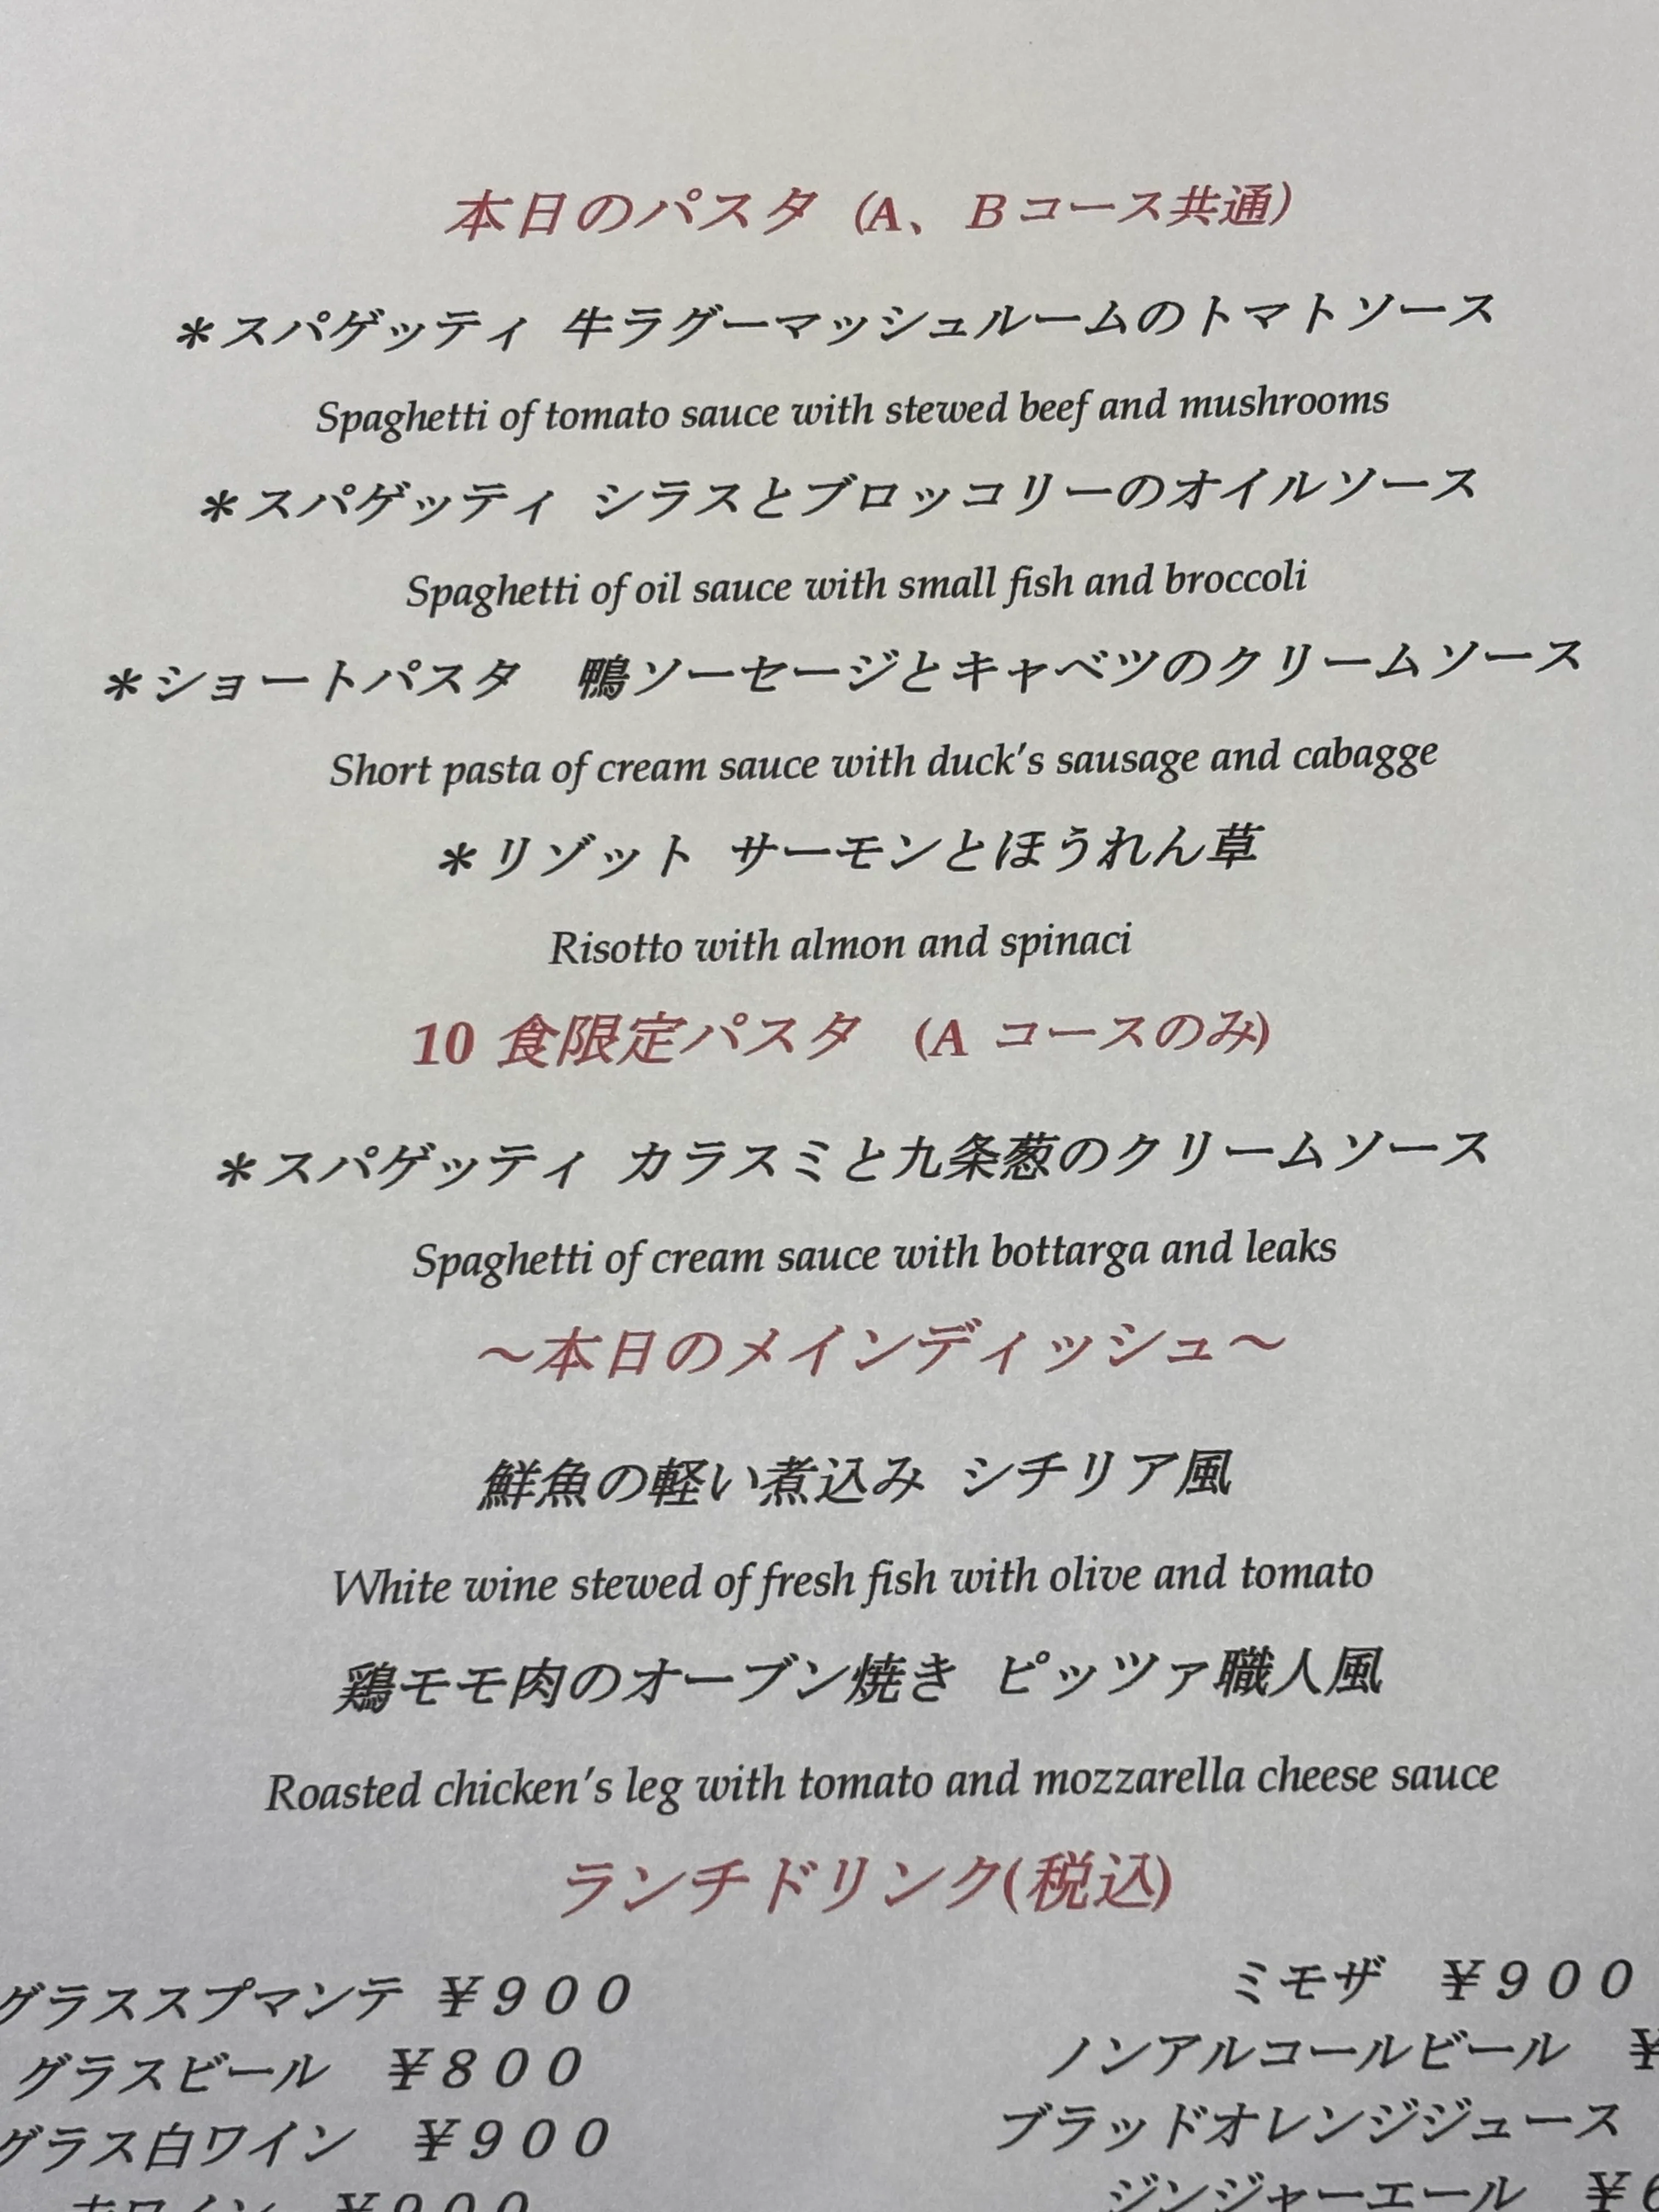 本日のパスタ (A、Bコース共通)
＊スパゲッティ 牛ラグーマッシュルームのトマトソース
Spaghetti of tomato sauce with stewed beef and mushrooms
＊スパゲッティ シラスとブロッコリーのオイルソース
Spaghetti of oil sauce with small fish and broccoli
＊ショートパスタ 鴨ソーセージとキャベツのクリームソース
Short pasta of cream sauce with duck's sausage and cabagge
＊リゾット サーモンとほうれん草
Risotto with almon and spinaci
10 食限定パスタ (A コースのみ)
＊スパゲッティ カラスミと九条葱のクリームソース
Spaghetti of cream sauce with bottarga and leaks
～本日のメインディッシュ～
鮮魚の軽い煮込み シチリア風
White wine stewed of fresh fish with olive and tomato
鶏モモ肉のオーブン焼き ピッツァ職人風
Roasted chicken's leg with tomato and mozzarella cheese sauce
ランチドリンク(税込)
グラススプマンテ ￥９００
ミモザ ￥９００
グラスビール ￥８００
ノンアルコールビール ￥
グラス白ワイン ￥９００
ブラッドオレンジジュース
ワイン ￥９００
ジンジャーエール ￥